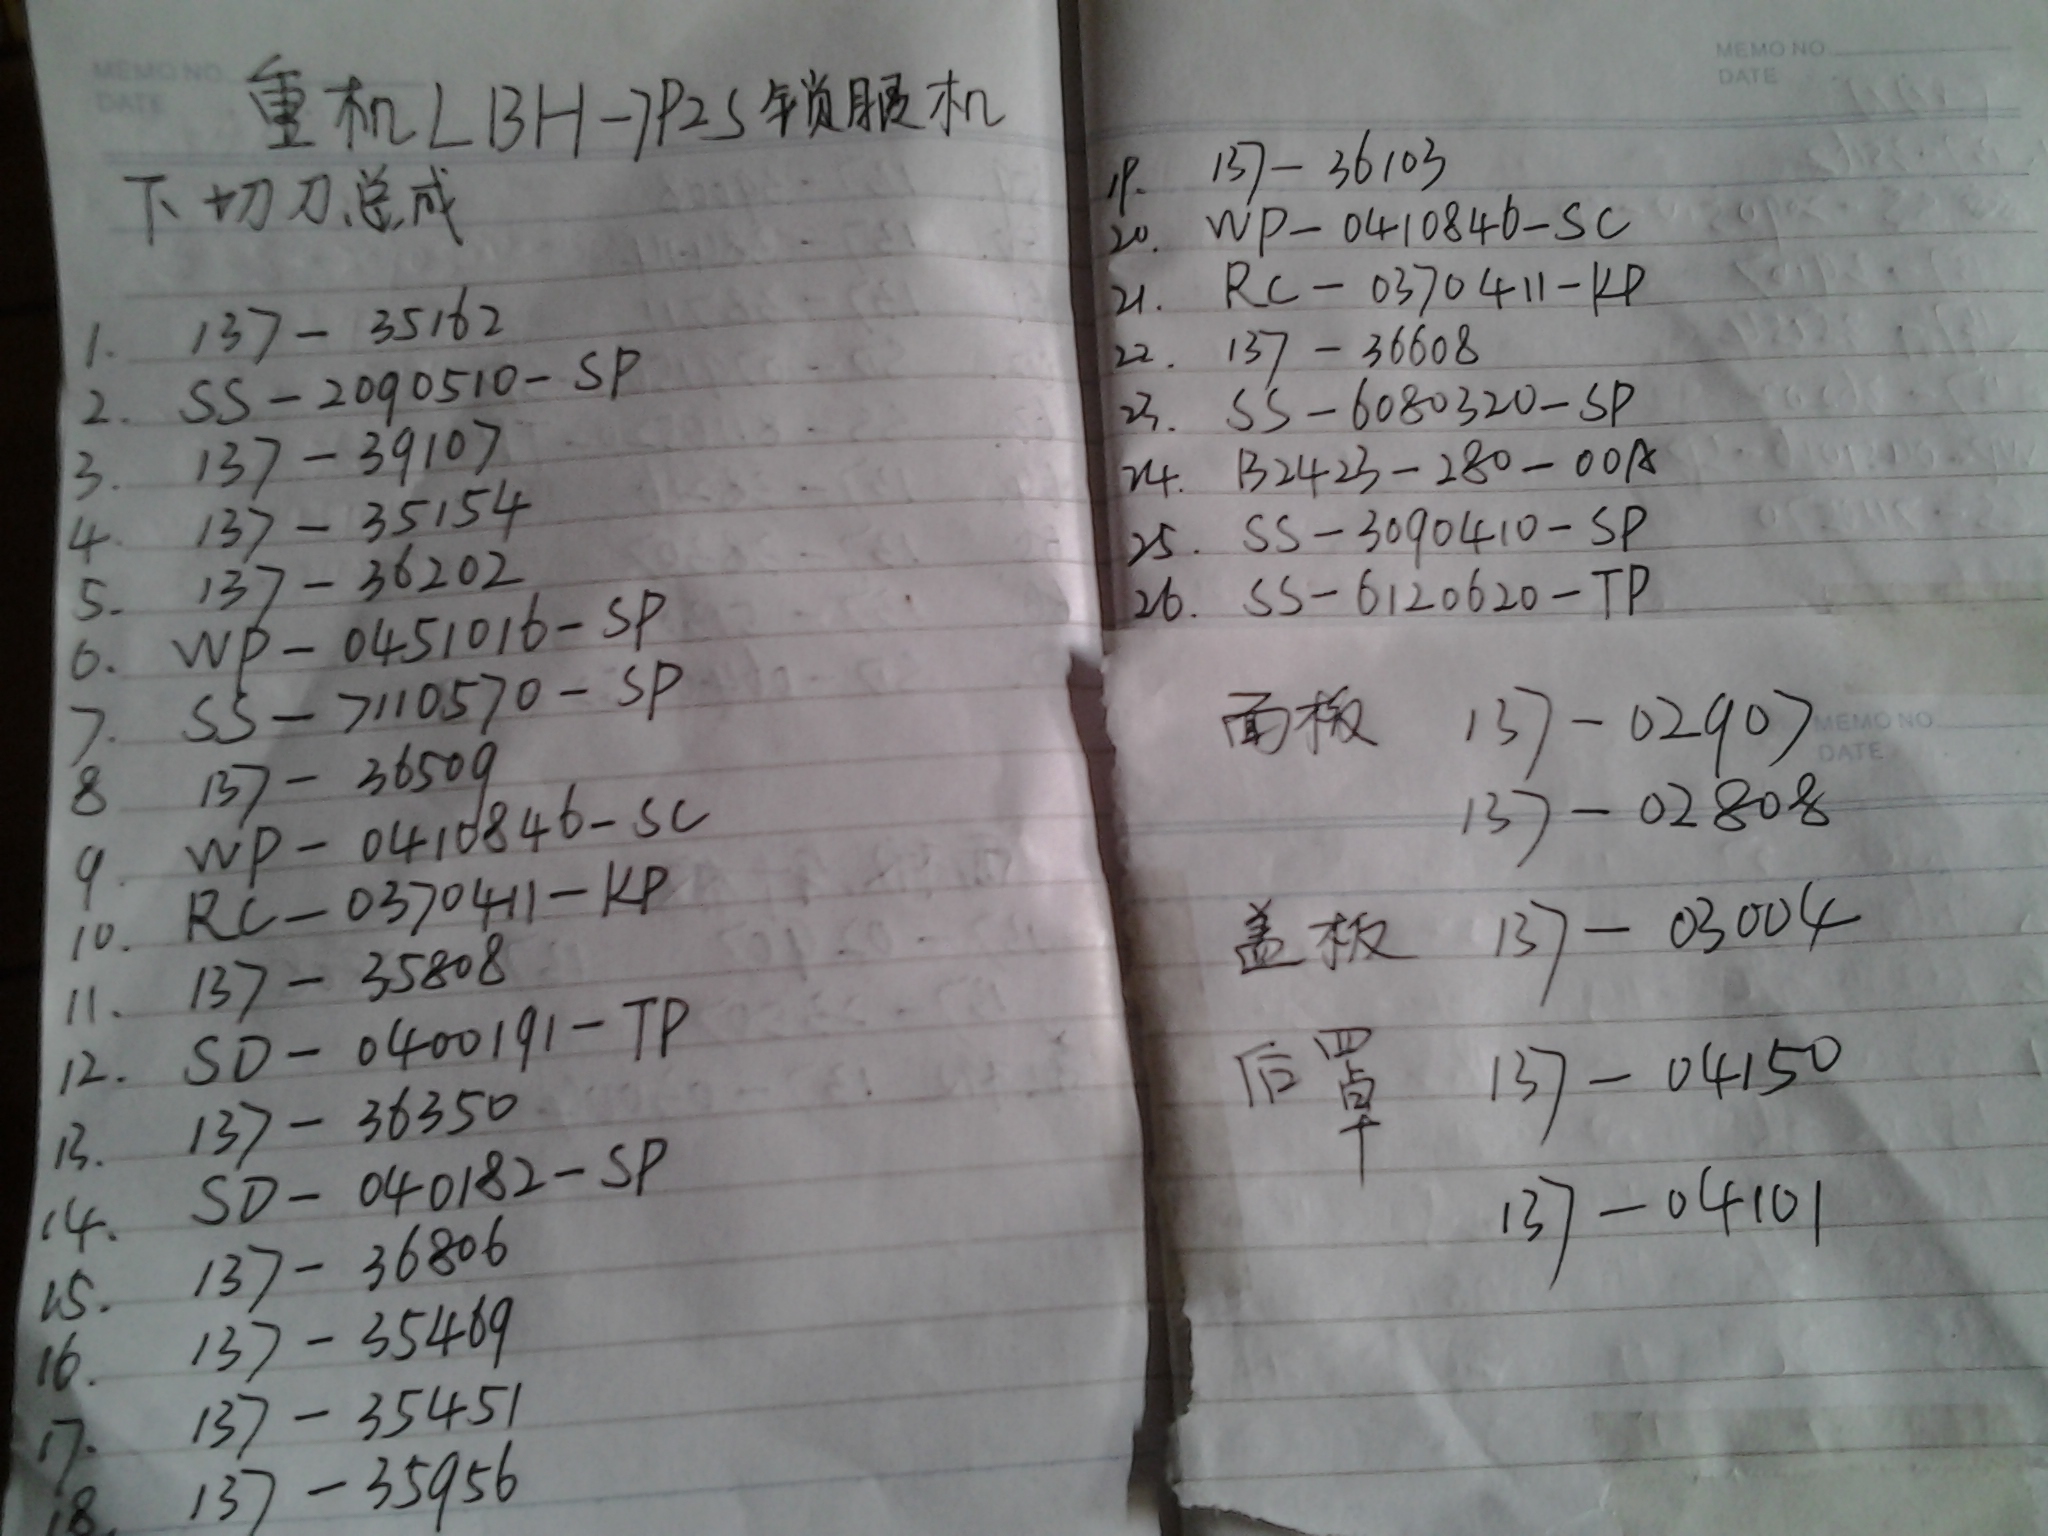 MEMO NO.
DATE
重机LBH-7P2S锁眼机
下切刀总成
1. 137-35162
2. SS-2090510-SP
3. 137-39107
4. 137-35154
5. 137-36202
6. WP-0451016-SP
7. SS-7110570-SP
8 137-36509
9. WP-0410846-SC
10. RC-0370411-KP
11. 137-35808
12. SD-0400191-TP
13. 137-36350
14. SD-040182-SP
15. 137-36806
16. 137-35469
17. 137-35451
18. 137-35956
MEMO NO.
DATE
19. 137-36103
20. WP-0410846-SC
21. RC-0370411-KP
22. 137-36608
23. SS-6080320-SP
24. B2423-280-00A
25. SS-3090410-SP
26. SS-6120620-TP
面板 137-02907
MEMO NO
DATE
137-02808
盖板 137-03004
后罩 137-04150
137-04101